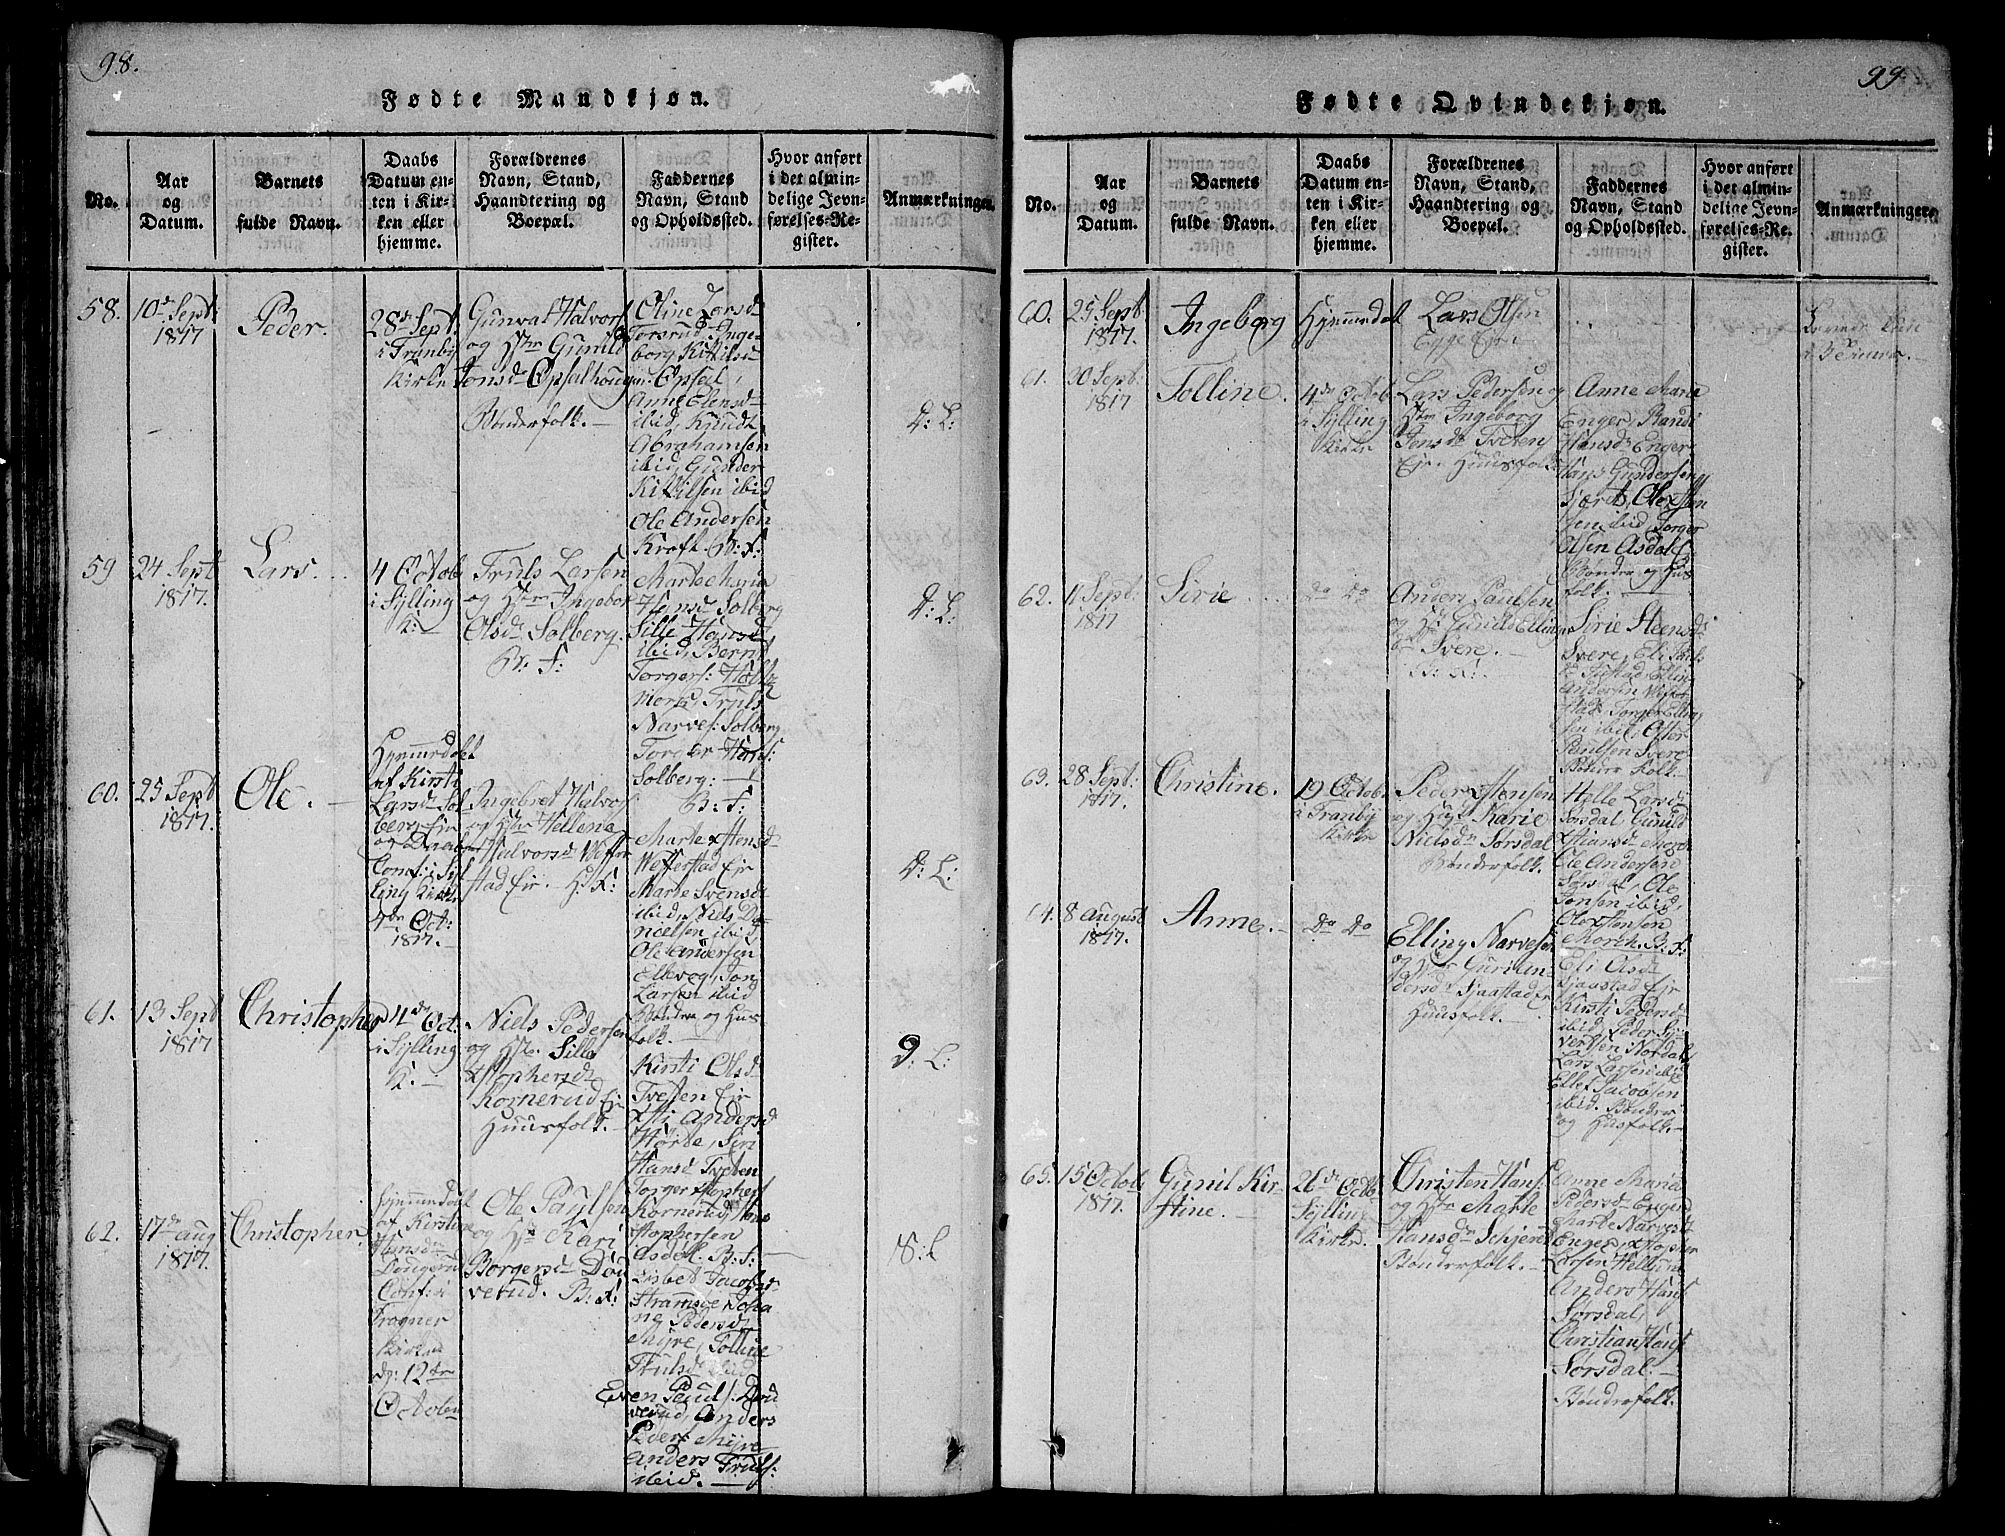 98.
Fødte Mandkjøn.
No.
Aar
og
Datum.
Barnets
fulde Navn.
Daabs
Datum en-
ten i Kir-
ken eller
hjemme.
Forældrenes
Navn, Stand,
Haandtering og
Boepæl.
Faddernes
Navn, Stand
og Opholdssted.
Hvor anført
i det almin-
delige Jevn-
førelses-Re-
gister.
Anmærkninger.
58.
10de Sept:
1817
Peder.
28de Sept.
i Tranby
Kirke
Gunval Halvors
og Hstr Gunild
Jonsd Opsalhougen
Bonderfolk. —
Oline Torsd
Torsrud, Inge-
borg Kittilsd
Opsal,
Anne Olensd
ibid, Knud
Abrahamsen
ibid, Gunder
Kittilsen ibid
Ole Andersen
Kraft. B: F:
D: L:
59
24 Sept
1817.
Lars.
4 Octob
i Sylling
K: —
Truls Larsen
og Hstr Ingebor
Olsd Solberg.
B: F:
Marte Maria
Hansd Solberg
Sille Hansd
ibid, Bernt
Torgers:
Truls
Narves: Solberg
Torger Hans:
Solberg: —
B: F:
D: L:
60.
25 Sept
1817.
Ole. —
Hjemmedøbt
af Kirsti
Larsd Sol
berg Eje
og Daaben
Conf: i Syl
ling Kirke
4de Oct:
1817. —
Ingebret Halvors
og Hstr Hellene
Halvorsd Weffer
stad Eje. — H: F:
Marte Xstensd
Wefferstad Eje
Marte Svensd
ibid, Niels Da-
nielsen ibid
Ole Andersen
Ellevog, Jon
Larsen ibid
Bondre og Hus
folk. —
D: L:
61.
13 Sept
1817
Christopher
4de Oct:
i Sylling
K: —
Niels Pedersen
og Hstr. Sille
Xstophersdr
Kornerud Eje
Huusfolk. —
Kirsti Olsd
Tveten Eje
Xsti Andersd
Hørte, Siri
Hansd Tveten
Torger Xstophers
Kornerud, Hans
Xstophersen
Asdøl. B: F: —
D: L:
62.
17de aug
1817.
Christopher.
Hjemmedøbt
af Kirstine
Hansdr
Conf: i
Frogner
Kirke
d: 12te
October
Ole Paulsen
og Hstr Kari
Borgersdr Døv
verud. B: F:
Lisbet Jacobsd
Stramsøe, Joha
ne Pedersd
Myre, Tolline
Trulsd ibid
Even Pauls: Døv
verud, Anders
Peders Myre
Anders Truls:
ibid. —
8: L
99.
Fødte Qvindekjøn.
No.
Aar
og
Datum.
Barnets
fulde Navn.
Daabs
Datum en-
ten i Kir-
ken eller
hjemme.
Forældrenes
Navn, Stand,
Haandtering og
Boepæl.
Faddernes
Navn, Stand
og Opholdssted.
Hvor anført
i det almin-
delige Jevn-
førelses-Re-
gister.
Anmærkninger.
60.
25 Sept
1817.
Ingeborg
Hjemmedøbt
Lars Olsen
Egge Eje. —
61.
30 Sept:
1817
Tolline.
4de Octob
i Sylling
Kirke
Lars Pedersen og
Hstr Ingeborg
Jensdr Tveten
Eje. Huusfolk
Anne Marie
Enger, Randi
Hansdr Enger
Hans Gundersen
Sjæret, Ole Xsten
sen ibid, Torger
Olsen Asdøl.
Bøndre og Hus
folk. —
62.
11 Sept:
1817
Sirie
Do Do
Anders Paulsen
og Hst Gunild Ellings
dr Svere. —
B: F: —
Sirie Steensd
Svere,
Elling
Andersen Weffer
stad, Torger Elling
sen ibid,
Paulsen Svere
Bønder Folk. —
63.
28 Sept:
1817.
Christine.
19 Octob
i Tranby
Kirke
Peder Xstensen
og Hst Karie
Nielsdr Sørsdal
Bønderfolk.
Helle Larsd
Sørsdal, Gunild
Xstiansd Mørch
Ole Andersen
Sørsdal, Ole
Jonsen ibid,
Ole Xstensen
Morch. B: F:
64.
8 august
1817.
Anne. —
Do Do
Elling Narvesen
og Hstr Guri An-
dersdr Sjaastad Ej
Huusfolk. —
Eli Olsdr
Sjaastad Eje
Kirsti Pedersd
ibid, Peder Sy-
vertsen Nordal
Lars Larsen ibid
Ellef Jacobsen
ibid. Bøndre
og Husfolk. —
65.
15 Octob
1817.
Gunil Kir-
stine. —
26de Octb
Sylling
Kirke.
Christen Hans
og Hstr Marte
Hansdr Schjeret
Bønderfolk. —
Anne Marie
Pedersd Enger
Marte Narvesd
Enger, Xstopher
Larsen Hellum
Anders Hans
Sørsdal,
Christian Hans
Sørsdal. —
Bønderfolk. —